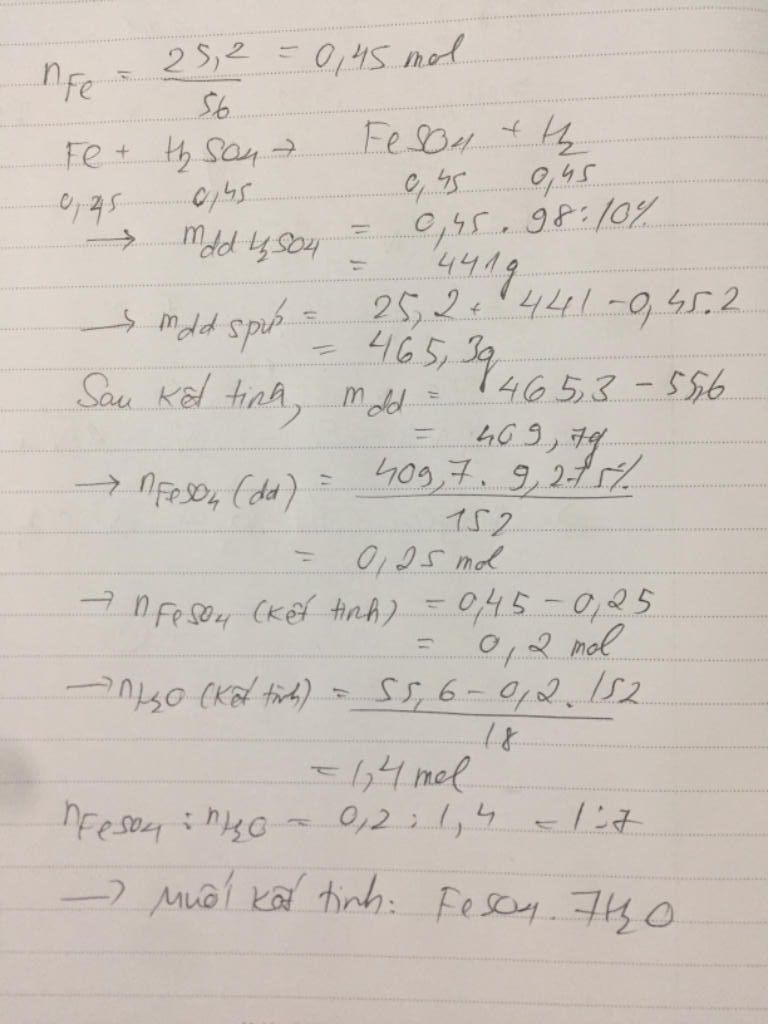 nFe = 25,2/56 = 0,45 mol
Fe + H2SO4 → FeSO4 + H2
0,45 0,45 0,45 0,45
→ mdd H2SO4 = 0,45 . 98 : 10%
= 441g
→ mdd spứ = 25,2 + 441 - 0,45.2
= 465,3g
Sau kết tinh, mdd = 465,3 - 55,6
= 409,7g
→ nFeSO4 (dd) = 409,7 . 9,275% / 152
= 0,25 mol
→ nFeSO4 (kết tinh) = 0,45 - 0,25
= 0,2 mol
→ nH2O (kết tinh) = 55,6 - 0,2 . 152 / 18
= 1,4 mol
nFeSO4 : nH2O = 0,2 : 1,4 = 1:7
→ Muối kết tinh: FeSO4 . 7H2O